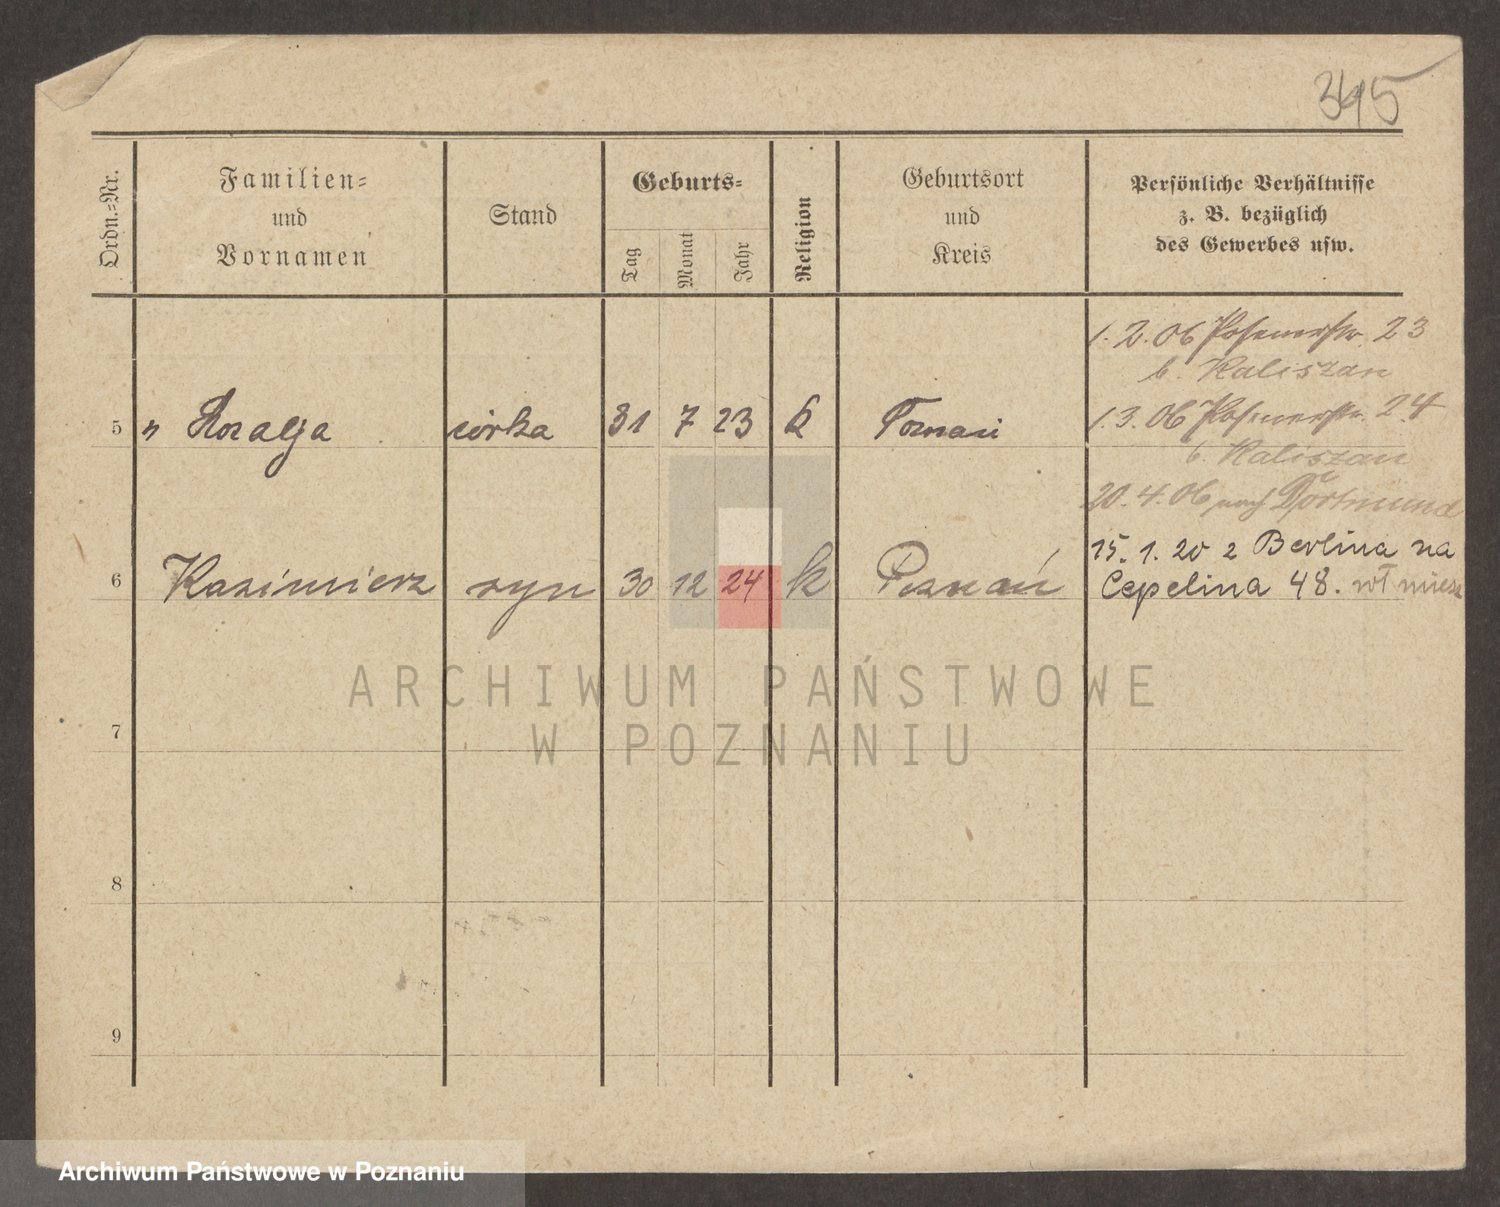 345
Ordn.=Nr.
Familien=
und
Vornamen
Stand
Geburts=
Tag
Monat
Jahr
Religion
Geburtsort
und
Kreis
Persönliche Verhältnisse
z. B. bezüglich
des Gewerbes usw.
1. 2. 06 Posenerstr. 23
b. Kaliszan
5 " Rozalja córka 31 7 23 k Poznań
1. 3. 06 Posenerstr. 24
b. Kaliszan
20. 4. 06 nach Dortmund
15. 1. 20 z Berlina na
6 Kazimierz syn 30 12 24 k Poznań
Cepelina 48. wł miesz
7
8
9
ARCHIWUM PAŃSTWOWE
W POZNANIU
Archiwum Państwowe w Poznaniu